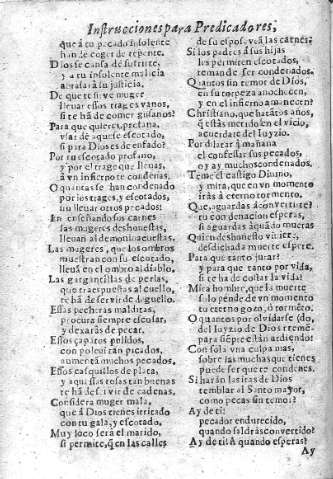 Instrucciones para Predicadores,
que à tu pecado insolente
han de coger de repente.
Dios se cansa de sufrirte,
y a tu insolente malicia
arrasarà su justicia.
De que te sirve muger
llevar essos trages vanos,
si te hà de comer gusanos?
Para que quieres, profana,
vsar de aquesse escotado,
si para Dios es de enfado?
Por tu escotado profano,
y por el trage que llevas,
à vn infierno te condenas.
O quantas se han condenado
por los trages, y escotados,
sin llevar otros pecados!
En enseñando sus carnes
las mugeres deshonestas,
llevan al demonio acuestas.
Las mugeres, que los ombros
muestran con su escotado,
llevã en el ombro al diablo.
Las gargantillas de perlas,
que traes puestas al cuello,
te hà de servir de deguello.
Essas pecheras malditas,
procura siempre escusar,
y dexaràs de pecar.
Essos çapatos polidos,
con polevi tan picados,
aumentã muchos pecados.
Essos cascavillos de plata,
y aquessas rosas tan buenas
te hà de servir de cadenas.
Considera muger mala,
que à Dios tienes irritado
con tu gala, y escotado.
Muy loco serà el marido,
si permite, q̃ en las calles
de su esposa veã las carnes?
Si los padres à sus hijas
les permiten escotados,
teman de ser condenados.
Quantos sin temor de Dios,
en su torpeza anochecen,
y en el infierno amanecen?
Christiano, que ha tãtos años,
q̃ estàs metido en el vicio,
acuerdate del Iuyzio.
Por dilatar à mañana
el confessar sus pecados,
oy ay muchos condenados.
Teme el castigo Divino,
y mira, que en vn momento
iràs à eterno tormento.
Que, aguardas à convertirte?
tu condenacion esperas,
si aguardas à quãdo mueras
Quien deshonesto viviere,
desdichada muerte espere.
Para que tanto jurar?
y para que tanto por vida,
si te ha de costar la vida?
Mira hombre, que la muerte
solo pende de vn momento
tu eterno gozo, ò tormẽto.
O quantos por olvidarse
del Iuyzio de Dios
para siẽpre estàn ardiendo!
Con sola vna culpa mas,
sobre las muchas que tienes
puede ser que te condenes.
Si haràn las iras de Dios
temblar al Santo mayor,
como pecas sin temor?
Ay de ti!
pecador endurecido,
quando saldràs convertido?
Ay de ti! A quando esperas?
Ay